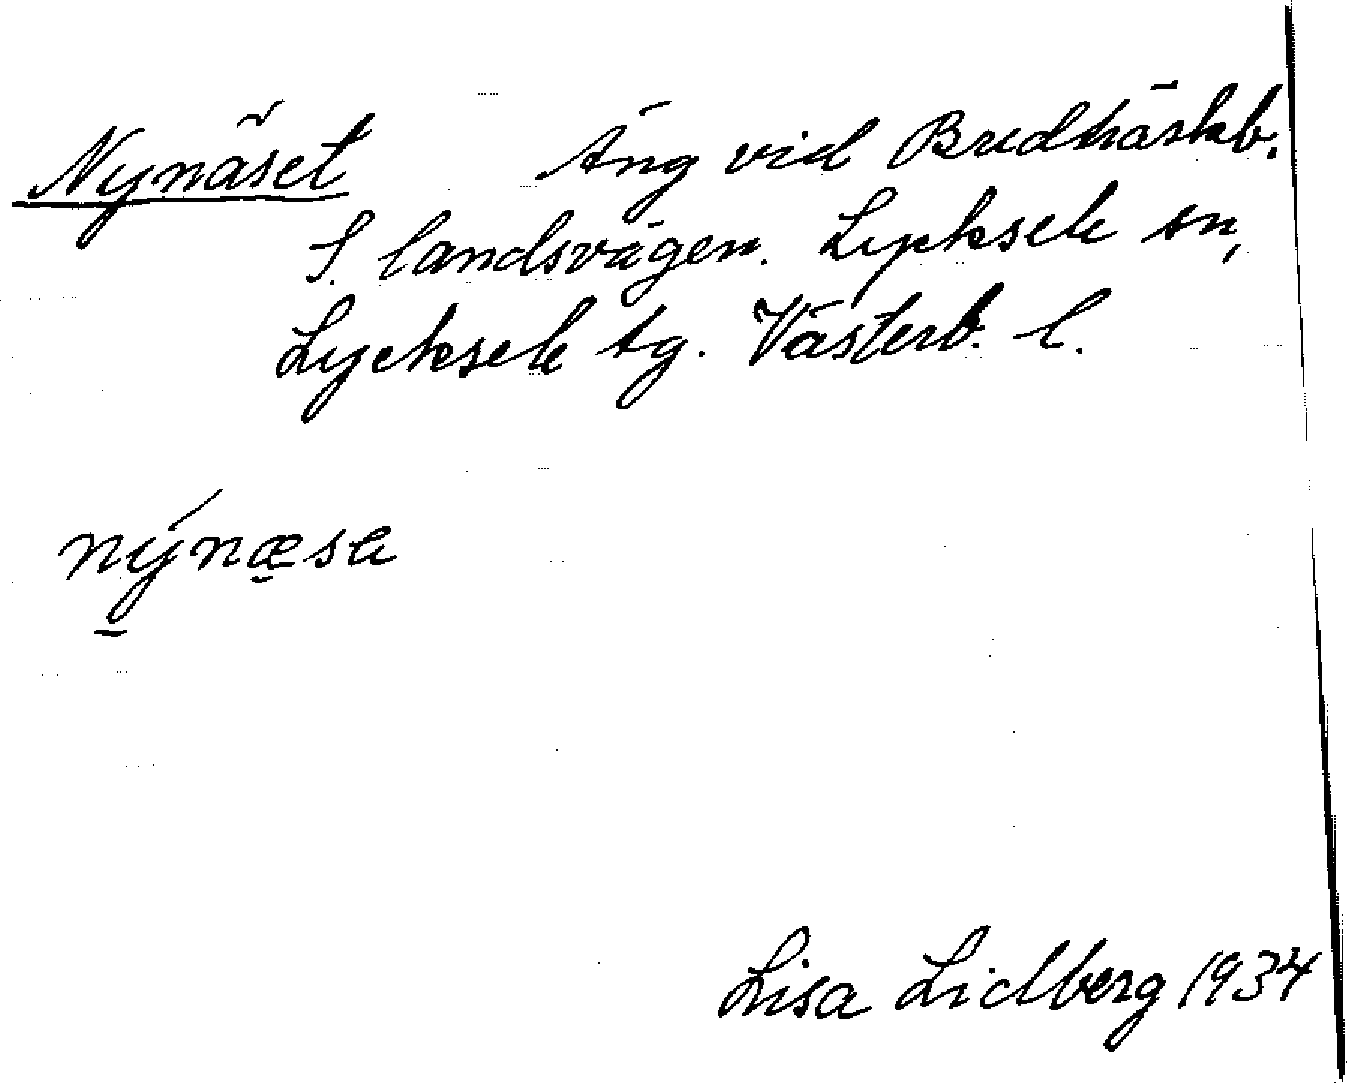 Nynäset Äng vid Bredträskb.
S. landsvägen. Lycksele sn,
Lycksele tg. Västerb. l.
nýnæse
Lisa Lidberg 1934